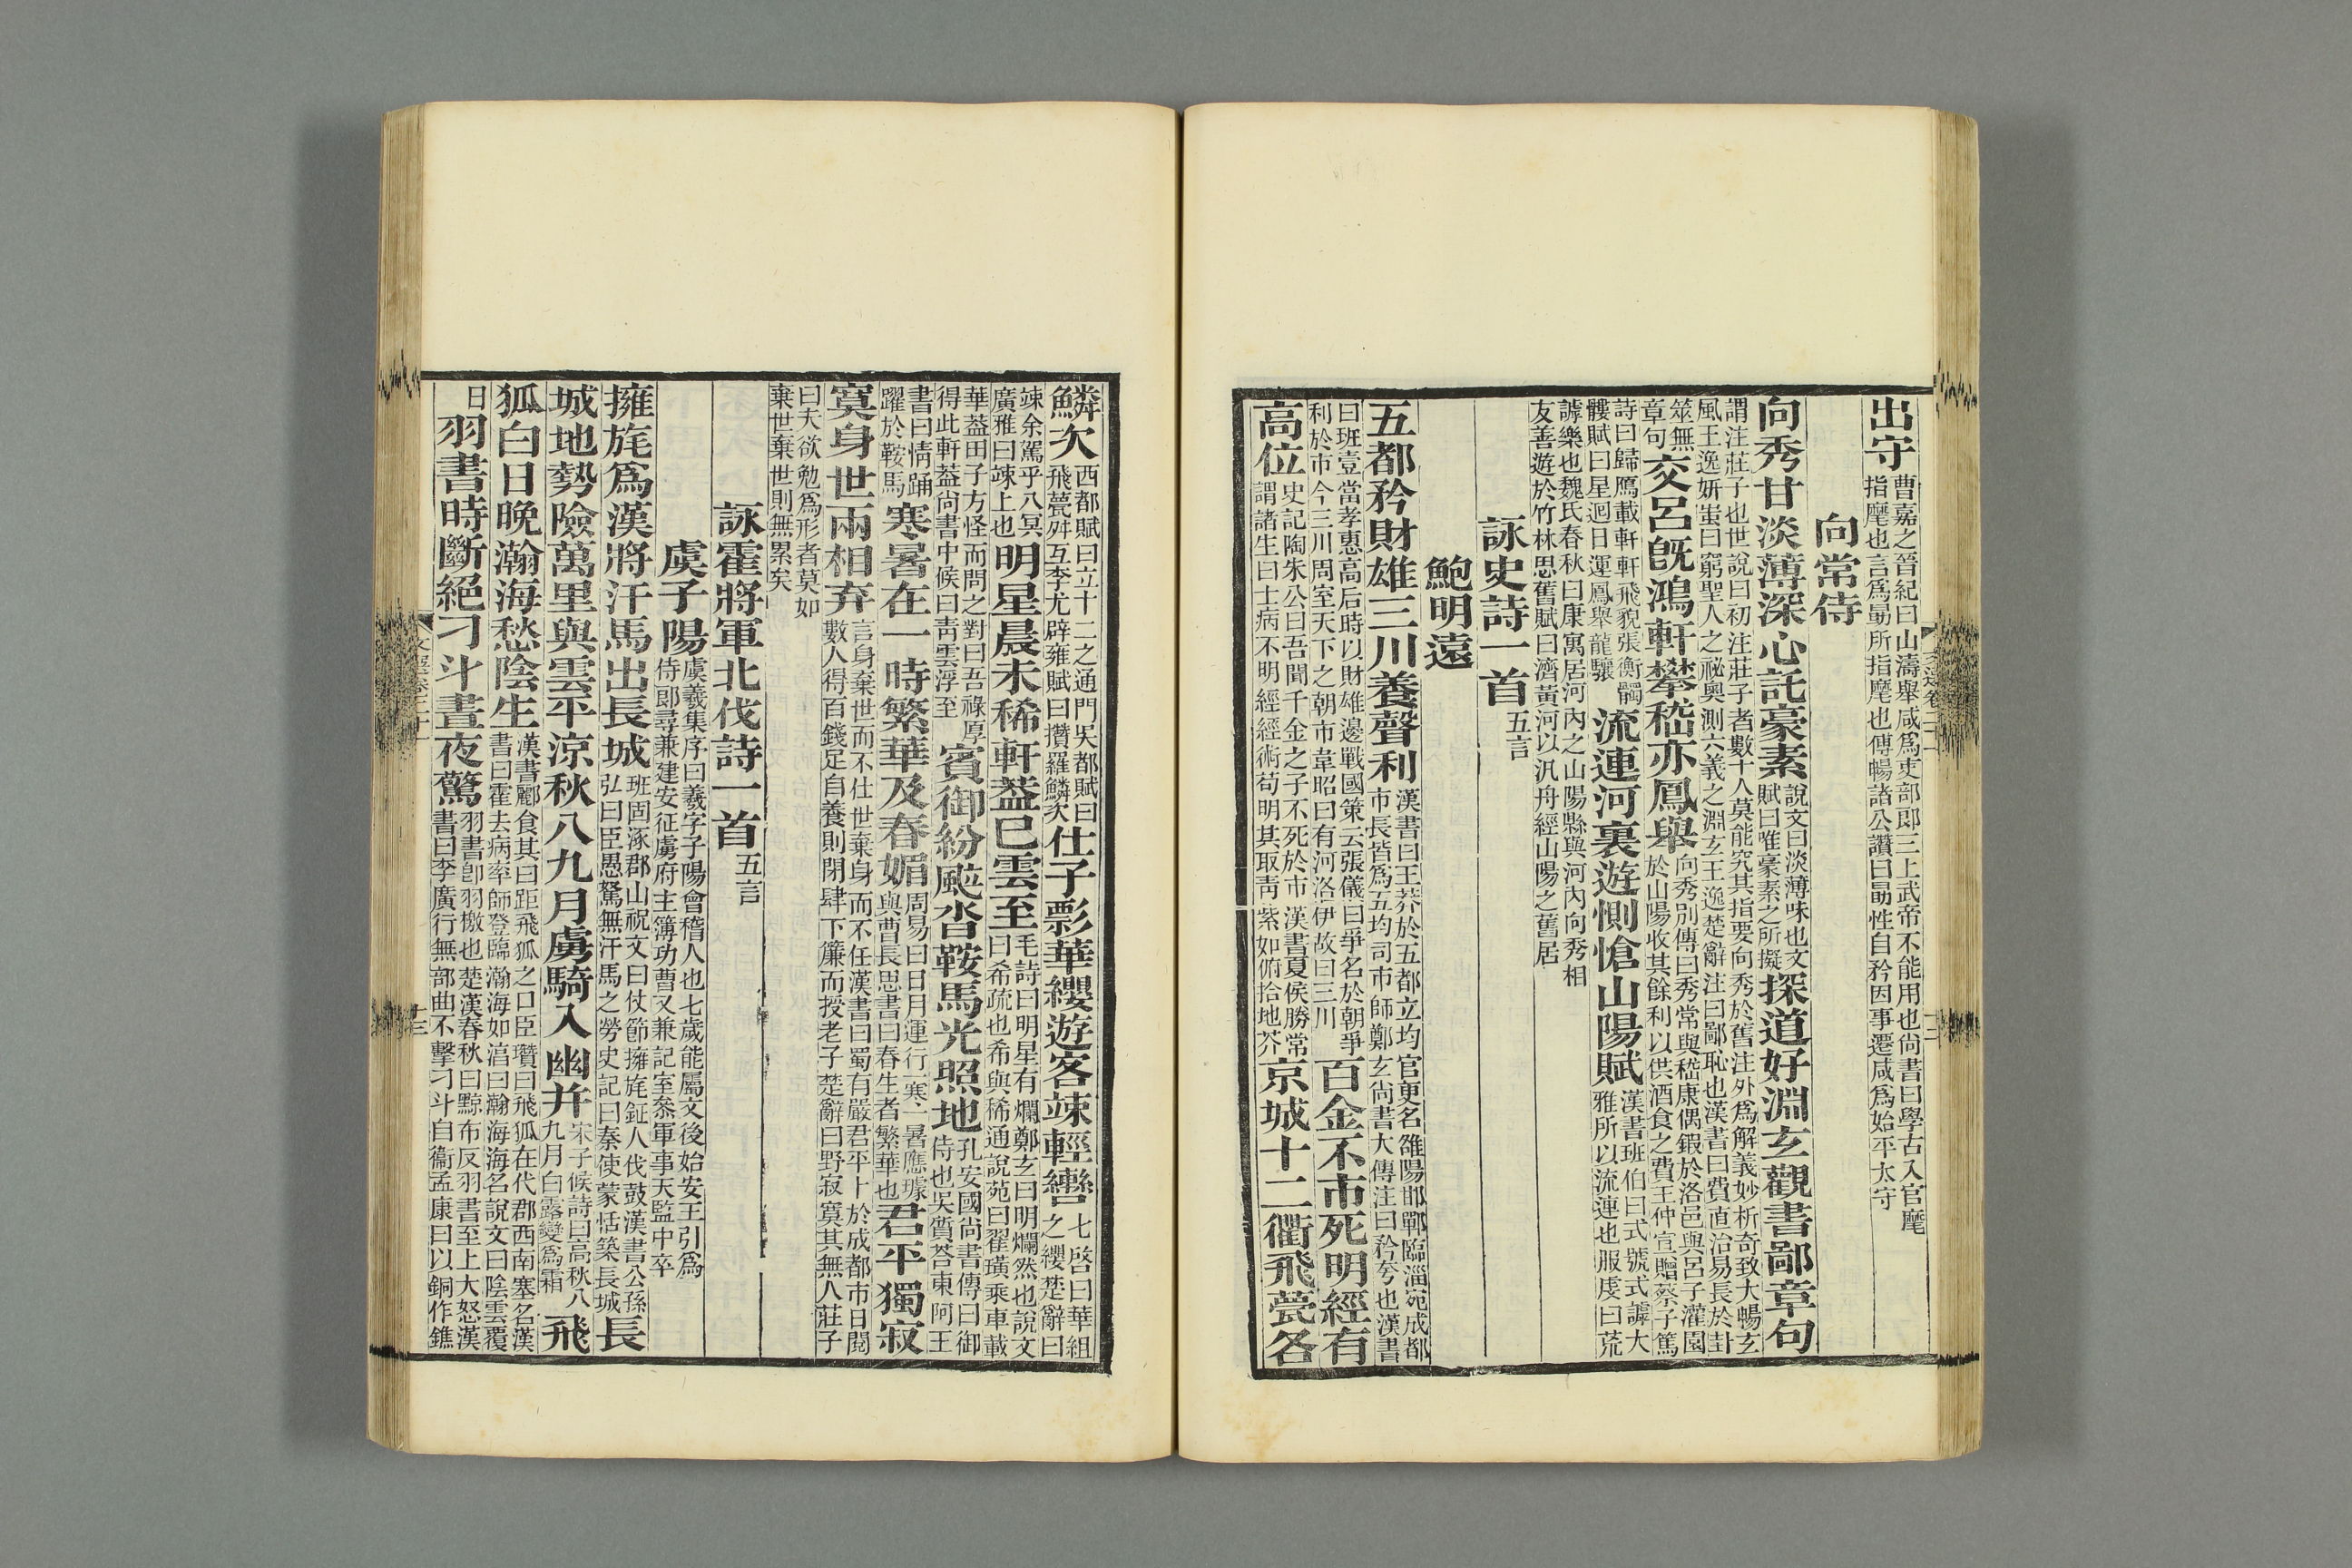 出守曹嘉之晉紀曰山濤舉咸爲吏部郎三上武帝不能用也尚書曰學古入官麾
指麾也言爲勗所指麾也傅暢諸公讚曰勗性自矜因事遷咸爲始平太守
向常侍
向秀甘淡薄深心託豪素說文曰淡薄味也文
賦曰唯豪素之所擬探道好淵玄觀書鄙章句
謂注莊子也世說曰初注莊子者數十人莫能究其指要向秀於舊注外爲解義妙析奇致大暢玄
風王逸妍蚩曰窮聖人之祕奧測六義之淵玄王逸楚辭注曰鄙恥也漢書曰費直治易長於卦
筮無
章句交呂旣鴻軒攀嵇亦鳳舉向秀別傳曰秀常與嵇康偶鍛於洛邑與呂子灌園
於山陽收其餘利以供酒食之費王仲宣贈蔡子篤
詩曰歸鴈載軒軒飛貌張衡髑
髏賦曰星迴日運鳳舉龍驤流連河裏遊惻愴山陽賦漢書班伯曰式號式謼大
雅所以流連也服虔曰荒
謼樂也魏氏春秋曰康寓居河內之山陽縣與河內向秀相
友善遊於竹林思舊賦曰濟黃河以汎舟經山陽之舊居
詠史詩一首五言
鮑明遠
五都矜財雄三川養聲利漢書曰王莽於五都立均官更名雒陽邯鄲臨淄宛成都
市長皆爲五均司市師鄭玄尚書大傳注曰矜夸也漢書
曰班壹當孝惠高后時以財雄邊戰國策云張儀曰爭名於朝爭
利於市今三川周室天下之朝市韋昭曰有河洛伊故曰三川百金不市死明經有
高位史記陶朱公曰吾聞千金之子不死於市漢書夏侯勝常
謂諸生曰士病不明經經術苟明其取靑紫如俯拾地芥京城十二衢飛甍各
鱗次西都賦曰立十二之通門吳都賦曰
飛甍舛互李尤辟雍賦曰攢羅鱗次仕子彯華纓遊客竦輕轡七啓曰華組
之纓楚辭曰
竦余駕乎八冥
廣雅曰竦上也明星晨未稀軒葢已雲至毛詩曰明星有爛鄭玄曰明爛然也說文
曰希疏也希與稀通說苑曰翟璜乘車載
華葢田子方怪而問之對曰吾祿厚
得此軒葢尚書中候曰靑雲浮至賓御紛颯沓鞍馬光照地孔安國尚書傳曰御
侍也吳質荅東阿王
書曰情踊
躍於鞍馬寒暑在一時繁華及春媚周易曰日月運行一寒一暑應璩
與曹長思書曰春生者繁華也君平獨寂
寞身世兩相弃言身棄世而不仕世棄身而不任漢書曰蜀有嚴君平卜於成都市日閱
數人得百錢足自養則閉肆下簾而授老子楚辭曰野寂寞其無人莊子
曰夫欲勉爲形者莫如
棄世棄世則無累矣
詠霍將軍北伐詩一首五言
虞子陽虞羲集序曰羲字子陽會稽人也七歲能屬文後始安王引爲
侍郎尋兼建安征虜府主簿功曹又兼記室參軍事天監中卒
擁旄爲漢將汗馬出長城班固涿郡山祝文曰仗節擁旄鉦人伐鼓漢書公孫
弘曰臣愚駑無汗馬之勞史記曰秦使蒙恬築長城長
城地勢險萬里與雲平涼秋八九月虜騎入幽并宋子候詩曰高秋八
九月白露變爲霜飛
狐白日晚瀚海愁陰生漢書酈食其曰距飛狐之口臣瓚曰飛狐在代郡西南塞名漢
書曰霍去病率師登臨瀚海如湻曰瀚海海名說文曰陰雲覆
日羽書時斷絕刁斗晝夜驚羽書卽羽檄也楚漢春秋曰黥布反羽書至上大怒漢
書曰李廣行無部曲不擊刁斗自衞孟康曰以銅作鐎
十三